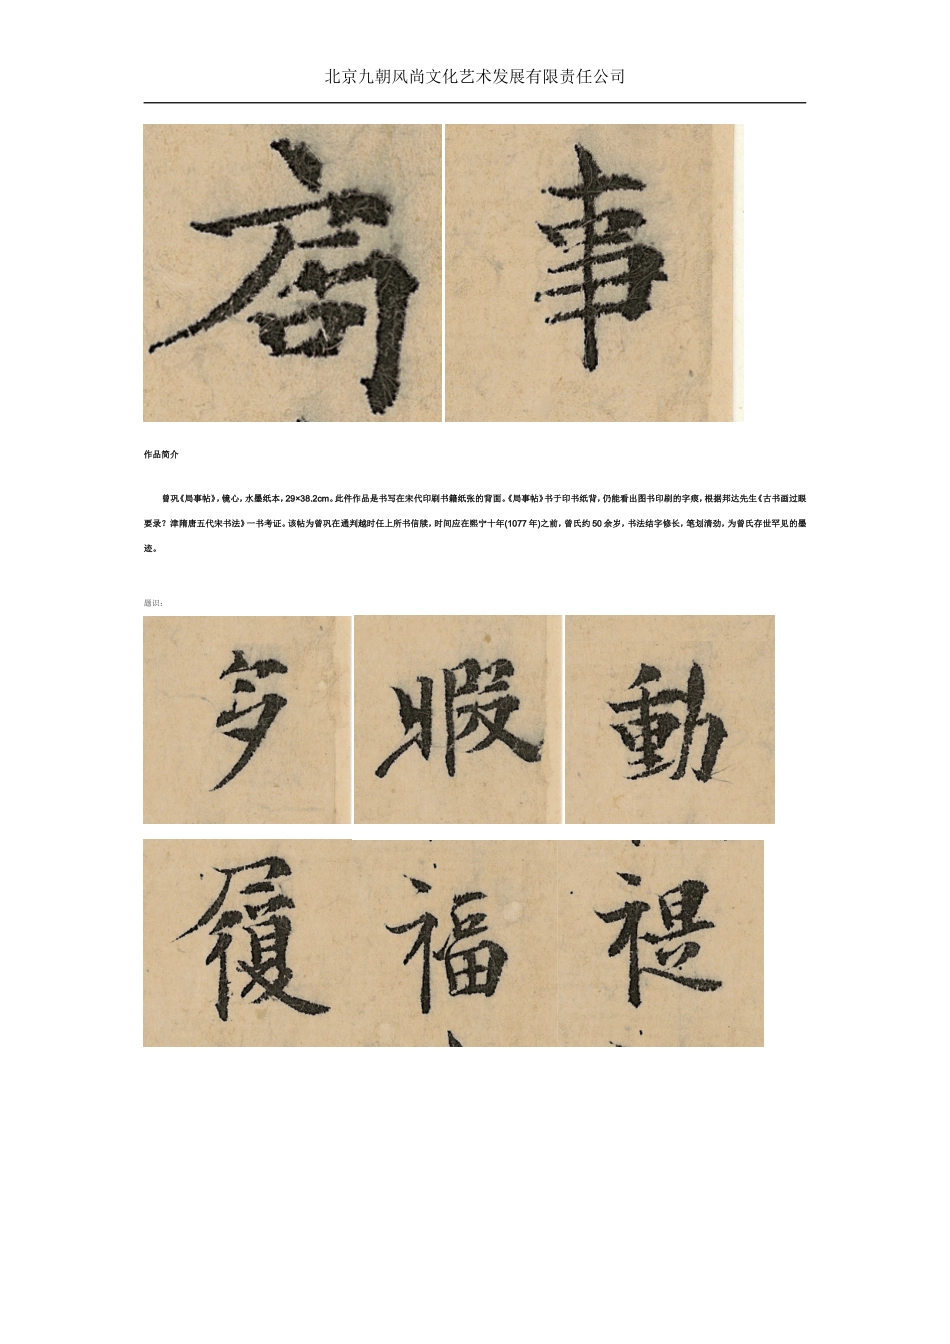 北京九朝风尚文化艺术发展有限责任公司
局 事
作品简介
曾巩《局事帖》，镜心，水墨纸本，29×38.2cm。此件作品是书写在宋代印刷书籍纸张的背面。《局事帖》书于印书纸背，仍能看出图书印刷的字痕，根据邦达先生《古书画过眼
要录？津隋唐五代宋书法》一书考证。该帖为曾巩在通判越时任上所书信牍，时间应在熙宁十年(1077 年)之前，曾氏约 50 余岁，书法结字修长，笔划清劲，为曾氏存世罕见的墨
迹。
题识：
多 暇 動
履 福 禔